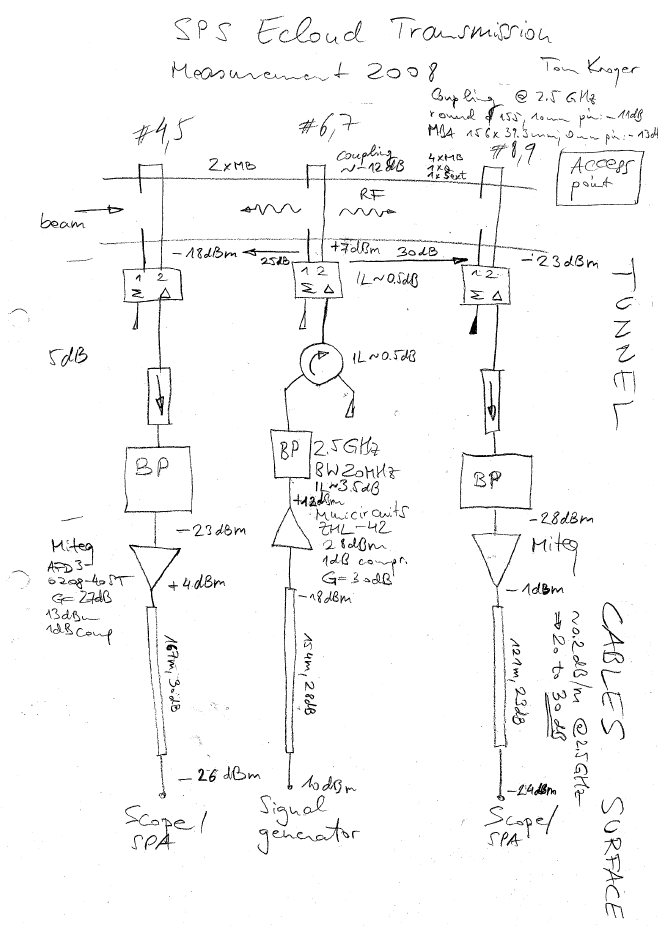 SPS Ecloud Transmission
Measurement 2008
Tom Kroyer
Coupling @ 2.5 GHz
round ø 155, 10mm pin: -11dB
MBA 156 x 39.3mm, 0mm pin: -13dB
#4,5
#6,7
#8,9
2xMB
coupling
~-12dB
4xMB
1xsext
Access
point
RF
beam
-18dBm
25dB
+7dBm
30dB
-23dBm
1 2
Σ Δ
1 2
Σ Δ
IL~0.5dB
1 2
Σ Δ
TUNNEL
5dB
IL~0.5dB
BP
BP
2.5GHz
BW20MHz
IL~3.5dB
BP
+12dBm
Minicircuits
ZHL-42
28dBm
1dB compr.
G=30dB
-23dBm
-28dBm
Miteq
AFD3-
0208-40ST
G=27dB
13dBm
1dBcomp
+4dBm
Miteq
-18dBm
-1dBm
167m, 30dB
154m, 28dB
121m, 23dB
~0.2dB/m @2.5GHz
⇒ 20 to 30dB
CABLES SURFACE
-26dBm
10dBm
-24dBm
Scope/
SPA
Signal
generator
Scope/
SPA